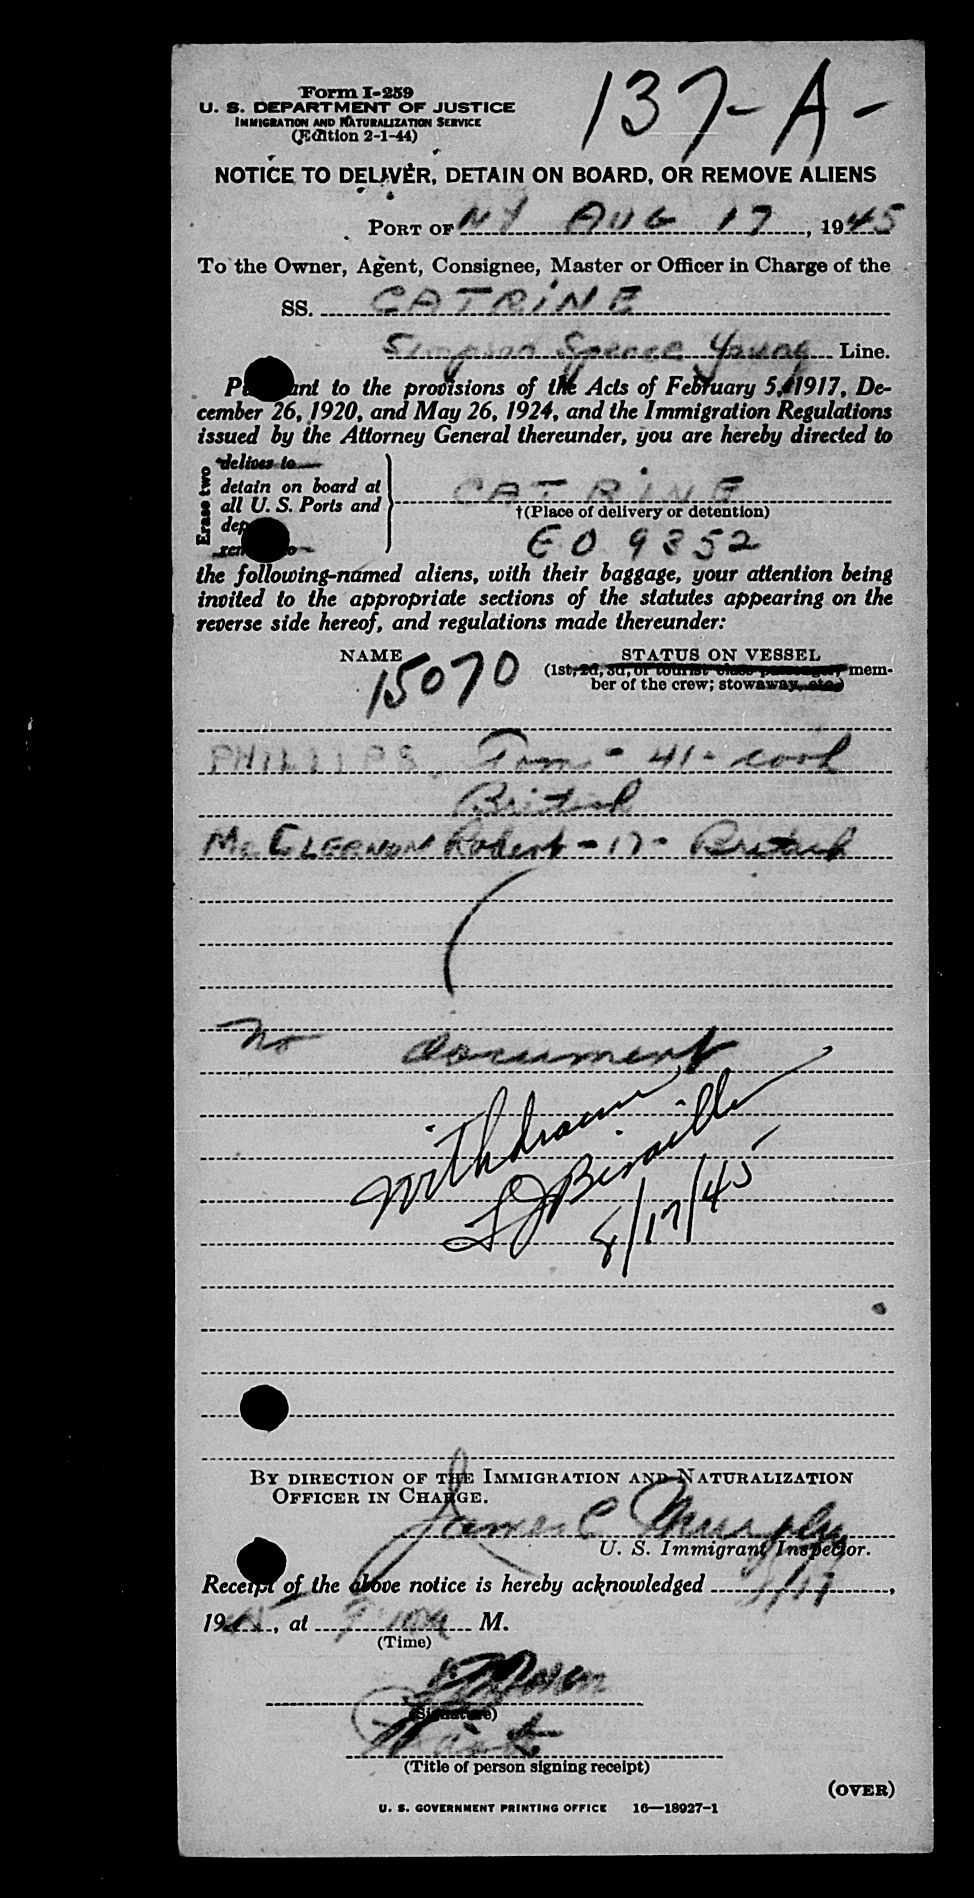 Form I-259
137-A-
U. S. DEPARTMENT OF JUSTICE
IMMIGRATION AND NATURALIZATION SERVICE
(Edition 2-1-44)
NOTICE TO DELIVER, DETAIN ON BOARD, OR REMOVE ALIENS
PORT OF NY AUG 17, 1945
To the Owner, Agent, Consignee, Master or Officer in Charge of the
SS. CATRINE
Simpson Spence Young Line.
Pursuant to the provisions of the Acts of February 5, 1917, De-
cember 26, 1920, and May 26, 1924, and the Immigration Regulations
issued by the Attorney General thereunder, you are hereby directed to
Erase two
deliver to
detain on board at
all U. S. Ports and
CATRINE
†(Place of delivery or detention)
EO 9352
the following-named aliens, with their baggage, your attention being
invited to the appropriate sections of the statutes appearing on the
reverse side hereof, and regulations made thereunder:
NAME
15070
STATUS ON VESSEL
(1st, 2d, 3d, or tourist class passenger, mem-
ber of the crew; stowaway, etc.)
PHILLIPS, Tom - 41 - cook
British
McCLERNON Robert - 17 - British
No document
Withdrawn
8/17/45
BY DIRECTION OF THE IMMIGRATION AND NATURALIZATION
OFFICER IN CHARGE.
James C Murphy
U. S. Immigrant Inspector.
Receipt of the above notice is hereby acknowledged 8/17,
1945, at M.
(Time)
(Signature)
(Title of person signing receipt)
(OVER)
U. S. GOVERNMENT PRINTING OFFICE 16—18927-1